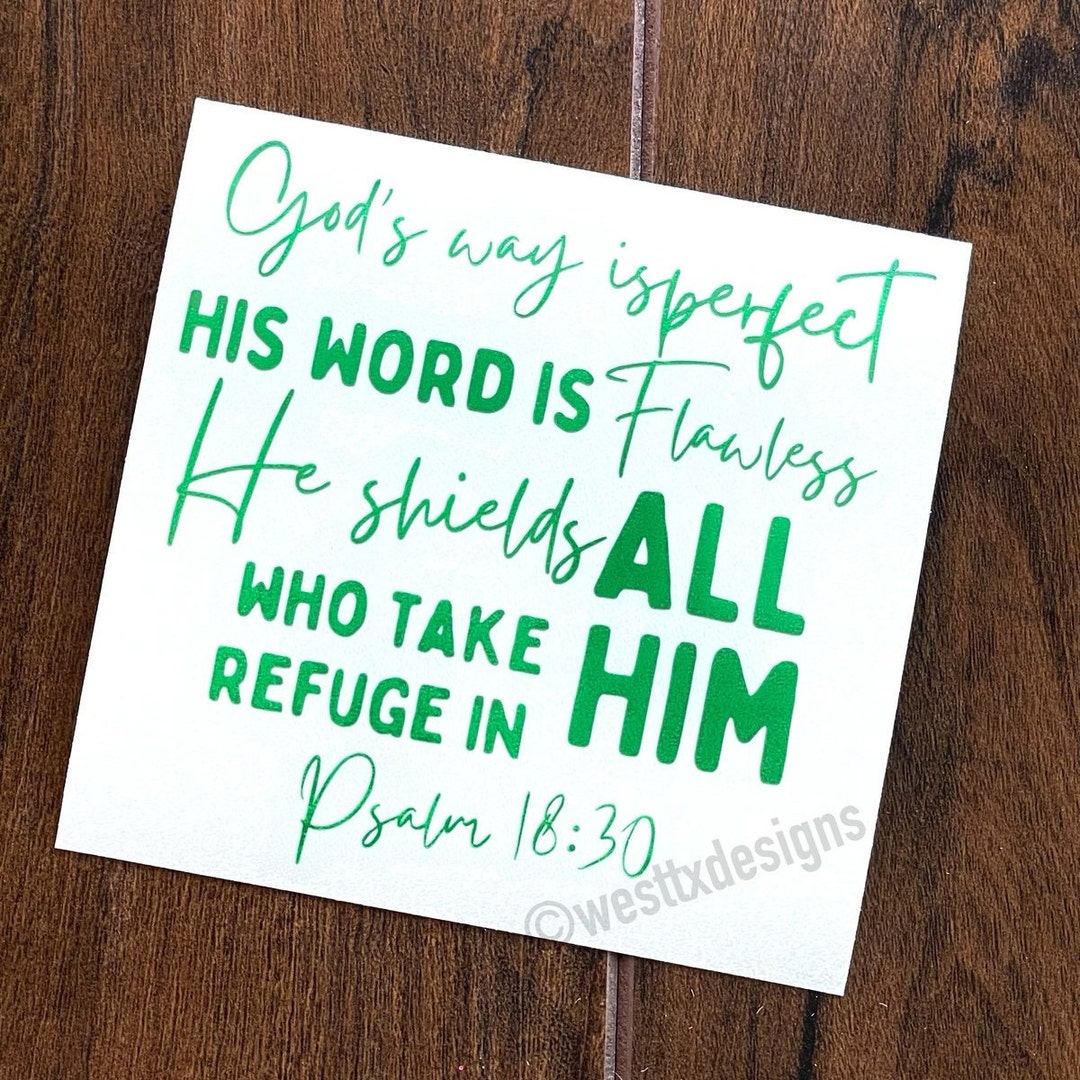 God's way isperfect
HIS WORD IS Flawless
He shields ALL
WHO TAKE
REFUGE IN HIM
Psalm 18:30
©westtxdesigns